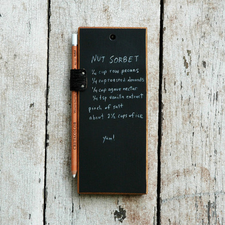 NUT SORBET
¼ cup raw pecans
¼ cup roasted almonds
¼ cup agave nectar
¼ tsp vanilla extract
pinch of salt
about 2½ cups of ice
yum!